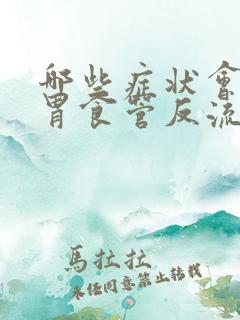 哪些症状會
胃食管反流
馬拉拉
未经同意禁止转载